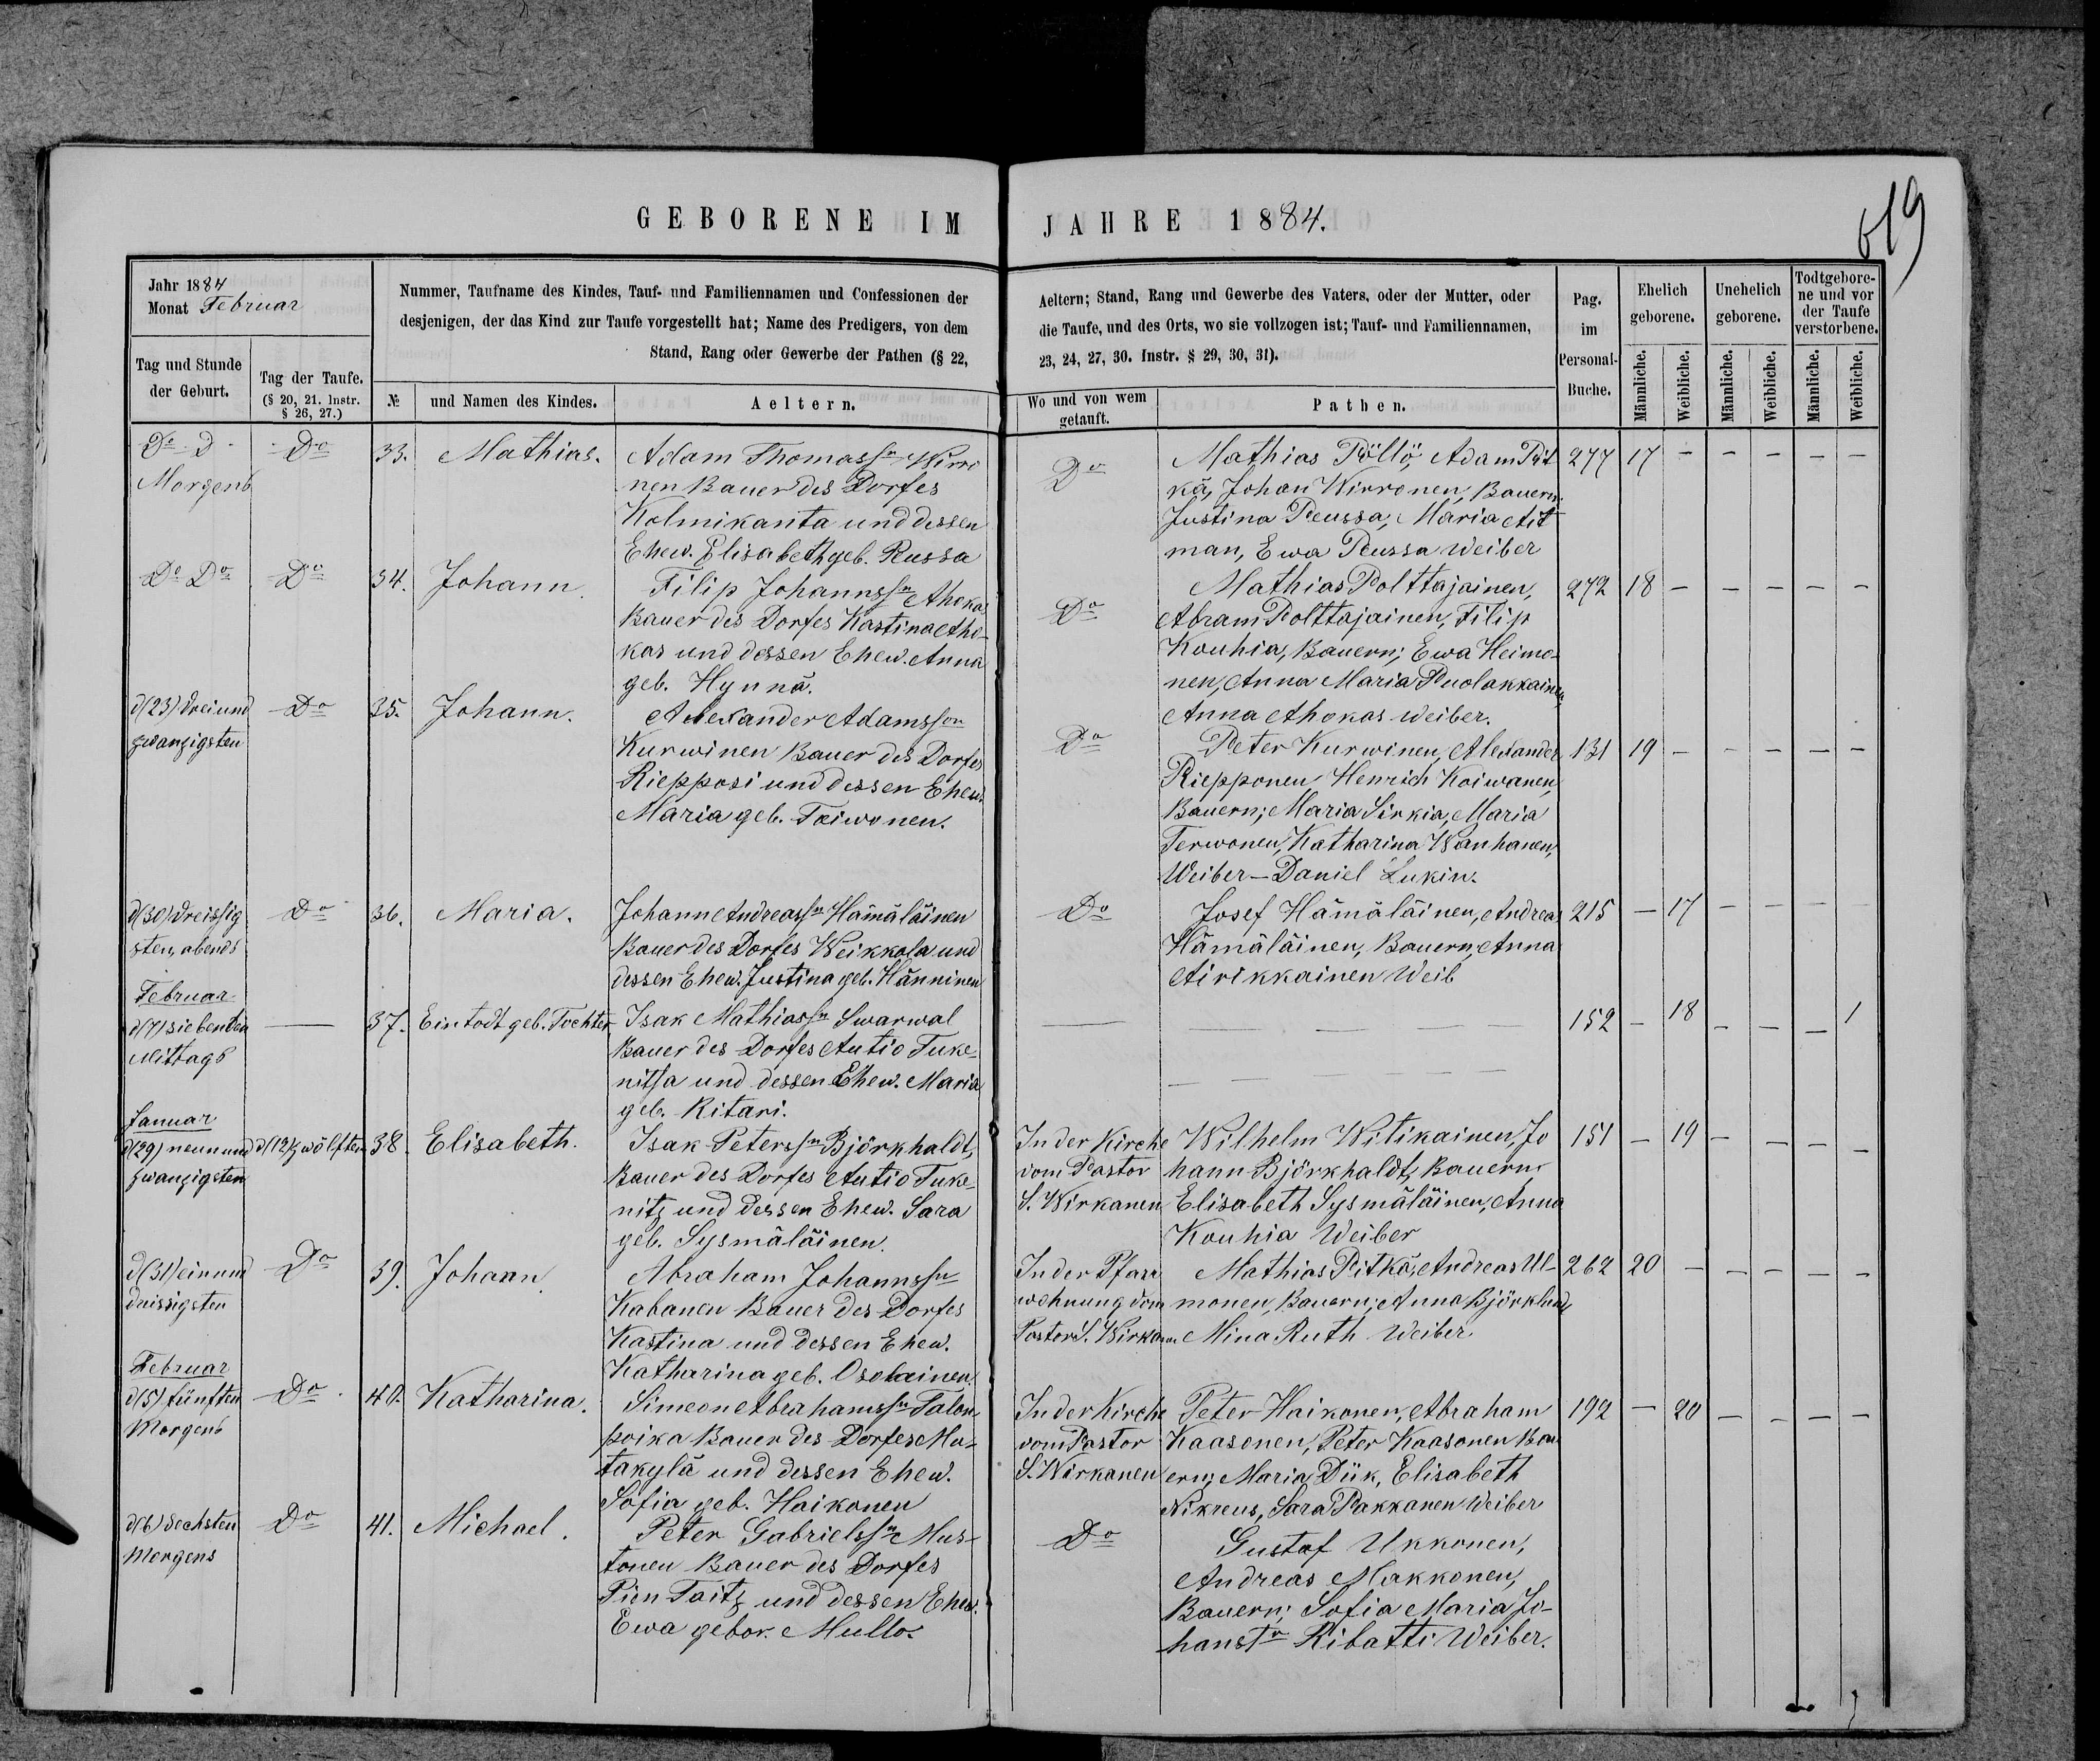 GEBORENE IM JAHRE 1884.
619
Jahr 1884
Monat Februar
Nummer, Taufname des Kindes, Tauf- und Familiennamen und Confessionen der
desjenigen, der das Kind zur Taufe vorgestellt hat; Name des Predigers, von dem
Stand, Rang oder Gewerbe der Pathen (§ 22,
Aeltern; Stand, Rang und Gewerbe des Vaters, oder der Mutter, oder
die Taufe, und des Orts, wo sie vollzogen ist; Tauf- und Familiennamen,
23, 24, 27, 30. Instr. § 29, 30, 31).
Pag.
im
Personal-
Buche.
Ehelich
geborene.
Unehelich
geborene.
Todtgebore-
ne und vor
der Taufe
verstorbene.
Tag und Stunde
der Geburt.
Tag der Taufe.
(§ 20, 21. Instr.
§ 26, 27.)
№
und Namen des Kindes.
Aeltern.
Wo und von wem
getauft.
Pathen.
Männliche.
Weibliche.
Männliche.
Weibliche.
Männliche.
Weibliche.
Do D
Morgens
Do
33.
Mathias.
Adam Thomassn Wirro
nen Bauer des Dorfes
Kolmikanta und dessen
Ehew. Elisabeth geb. Russa
Do
Mathias Pöllö, Adam Pit
kä, Johan Wirronen, Bauern.
Justina Peussa, Maria Ait
man, Ewa Peussa Weiber
277 17 - - - - -
Do Do
Do
34.
Johann.
Filip Johannssn Ahokas
Bauer des Dorfes Kastina Aho-
kas und dessen Ehew. Anna
geb. Hynnä.
Do
Mathias Polttajainen,
Abram Polttajainen, Filip
Kouhia, Bauern; Ewa Heimo-
nen, Anna Maria Puolakkainen,
Anna Ahokas Weiber.
272 18 - - - - -
d(23) drei und
zwanzigsten
Do
35.
Johann.
Alexander Adamsson
Kurwinen Bauer des Dorfes
Riepposi und dessen Ehew.
Maria geb. Toiwonen.
Do
Peter Kurwinen, Alexander
Riepponen Henrich Koiwanen,
Bauern; Maria Sirkia, Maria
Terwonen, Katharina Wanhanen,
Weiber - Daniel Lukin.
131 19 - - - - -
d(30) dreissig
sten, abends
Do
36.
Maria.
Johann Andreassn Hämäläinen
Bauer des Dorfes Weikkola und
dessen Ehew. Justina geb. Hänninen
Do
Josef Hämäläinen, Andreas
Hämäläinen, Bauern, Anna
Airikkainen Weib
215 - 17 - - - -
Februar
d(7) siebenten
Mittags
-
37.
Ein todt geb. Tochter
Isak Mathiassn Swarwal
Bauer des Dorfes Autio Tuke-
nitsa und dessen Ehew. Maria
geb. Kitari.
152 - 18 - - - 1
Januar
d(29) neun und
zwanzigsten
d(12) zwölften
38.
Elisabeth.
Isak Peterssn Björkhaldt,
Bauer des Dorfes Autio Tuke-
nitz und dessen Ehew. Sara
geb. Sysmäläinen.
In der Kirche
vom Pastor
S. Wirkanen
Wilhelm Witikainen, Jo
hann Björkhaldt, Bauern,
Elisabeth Sysmäläinen, Anna
Kouhia Weiber
151 - 19 - - - -
d(31) ein und
dreissigsten
Do
39.
Johann
Abraham Johannssn
Kabanen Bauer des Dorfes
Kastina und dessen Ehew.
Katharina geb. Osolainen.
In der Pfarr
wohnung vom
Pastor S. Wirkanen
Mathias Pitkä, Andreas Ul-
monen, Bauern; Anna Björklund,
Mina Ruth Weiber.
262 20 - - - - -
Februar
d(5) fünften
Morgens
Do
40.
Katharina.
Simeon Abrahamssn Talon-
poika Bauer des Dorfes Mu-
takylä und dessen Ehew.
Sofia geb. Haikonen
In der Kirche
vom Pastor
S. Wirkanen
Peter Haikonen, Abraham
Kaasonen, Peter Kaasonen Bau
ern; Maria Dük, Elisabeth
Nikreus, Sara Pakkanen Weiber
192 - 20 - - - -
d(6) sechsten
Morgens
Do
41.
Michael.
Peter Gabrielssn Mus-
tonen Bauer des Dorfes
Pien Taitz und dessen Ehew.
Ewa gebor. Mullo.
Do
Gustaf Ukkonen,
Andreas Makkonen,
Bauern; Sofia Maria Jo-
hanstr Ribatti Weiber.